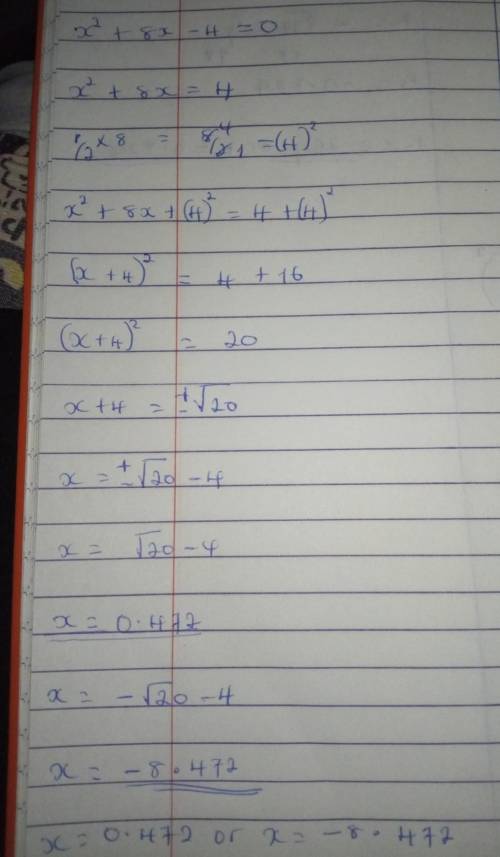 x² + 8x - 4 = 0
x² + 8x = 4
1/2 × 8 = 8⁴/2₁ = (4)²
x² + 8x + (4)² = 4 + (4)²
(x + 4)² = 4 + 16
(x + 4)² = 20
x + 4 = ±√20
x = ±√20 - 4
x = √20 - 4
x = 0.472
x = -√20 - 4
x = -8.472
x = 0.472 or x = -8.472